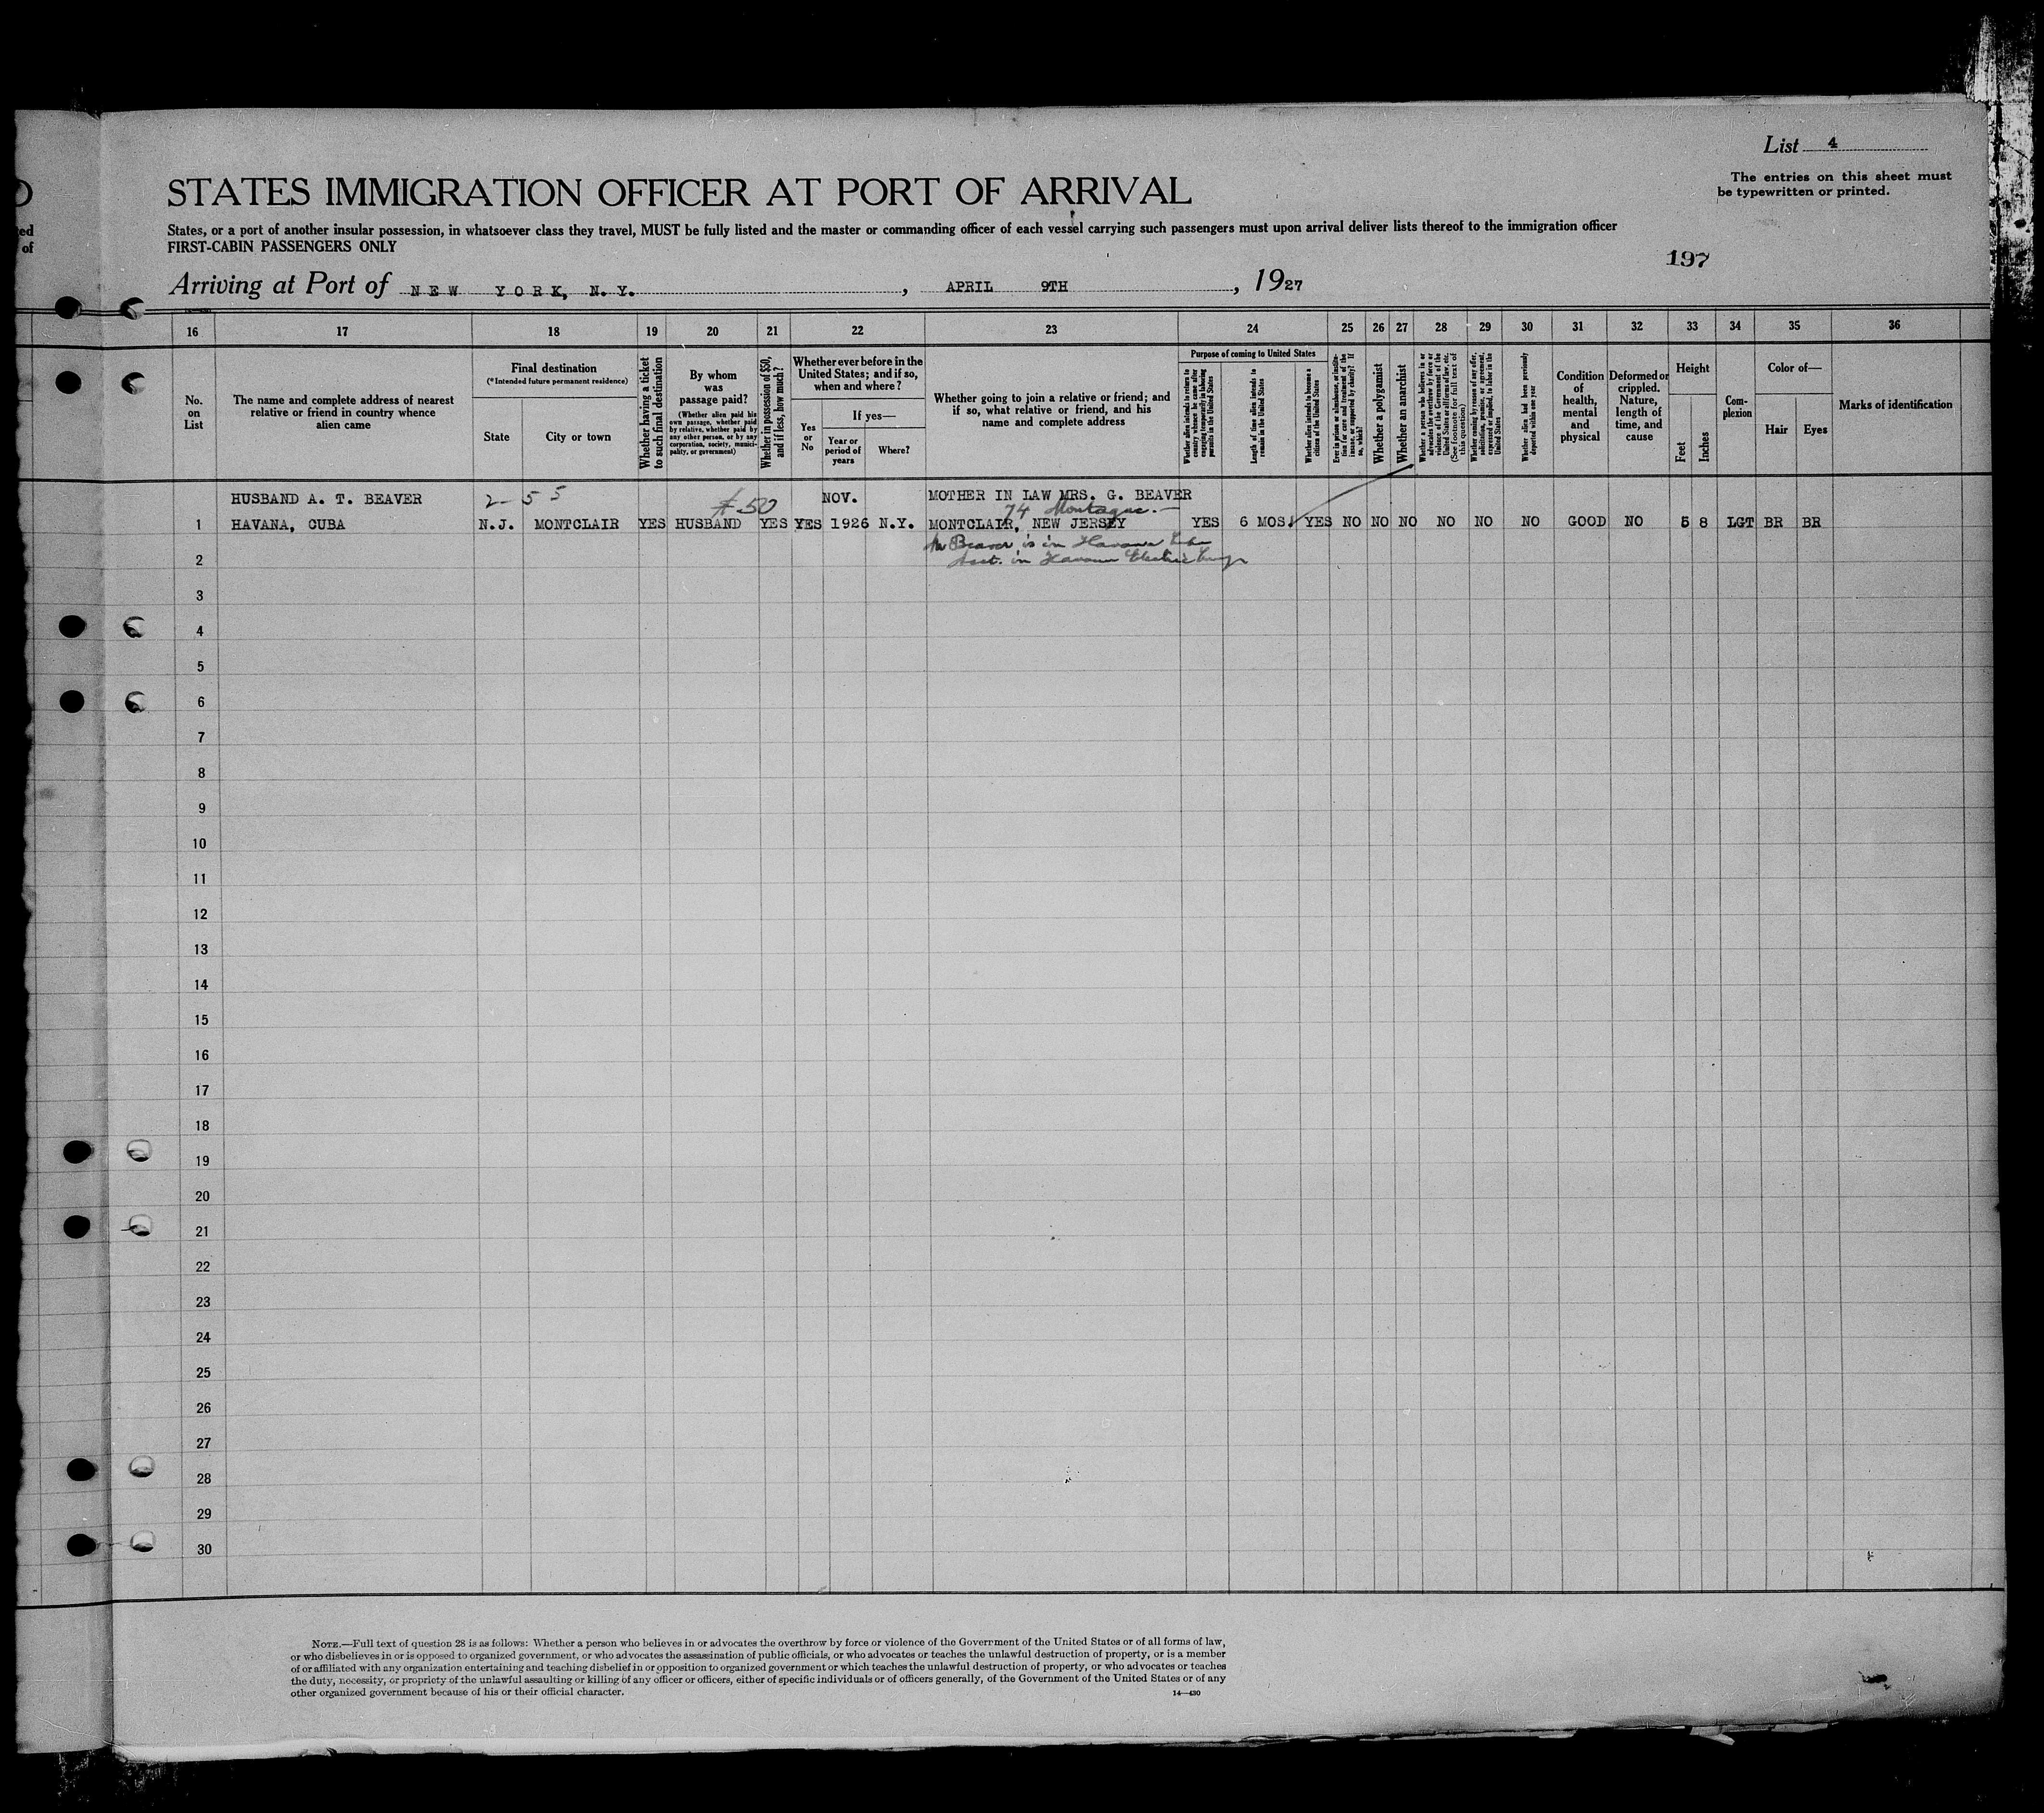 List 4
The entries on this sheet must
be typewritten or printed.
STATES IMMIGRATION OFFICER AT PORT OF ARRIVAL
ed
of
States, or a port of another insular possession, in whatsoever class they travel, MUST be fully listed and the master or commanding officer of each vessel carrying such passengers must upon arrival deliver lists thereof to the immigration officer
FIRST-CABIN PASSENGERS ONLY
197
Arriving at Port of NEW YORK, N.Y. , APRIL 9TH , 1927
16 17 18 19 20 21 22 23 24 25 26 27 28 29 30 31 32 33 34 35 36
No.
on
List
The name and complete address of nearest
relative or friend in country whence
alien came
Final destination
(*Intended future permanent residence)
State
City or town
Whether having a ticket
to such final destination
By whom
was
passage paid?
(Whether alien paid his
own passage, whether paid
by relative, whether paid by
any other person, or by any
corporation, society, munici-
pality, or government)
Whether in possession of $50,
and if less, how much?
Whether ever before in the
United States; and if so,
when and where?
Yes
or
No
If yes—
Year or
period of
years
Where?
Whether going to join a relative or friend; and
if so, what relative or friend, and his
name and complete address
Purpose of coming to United States
Whether alien intends to return to
country whence he came after
engaging temporarily in laboring
pursuits in the United States
Length of time alien intends to
remain in the United States
Whether alien intends to become a
citizen of the United States
Ever in prison or almshouse, or institu-
tion for care and treatment of the
insane, or supported by charity? If
so, which?
Whether a polygamist
Whether an anarchist
Whether a person who believes in or
advocates the overthrow by force or
violence of the Government of the
United States or all forms of law, etc.
(See footnote for full text of
this question)
Whether coming by reason of any offer,
solicitation, promise, or agreement,
expressed or implied, to labor in the
United States
Whether alien had been previously
deported within one year
Condition
of
health,
mental
and
physical
Deformed or
crippled.
Nature,
length of
time, and
cause
Height
Feet
Inches
Com-
plexion
Color of—
Hair
Eyes
Marks of identification
HUSBAND A. T. BEAVER 2-55 $50 NOV. MOTHER IN LAW MRS. G. BEAVER
74 Montague.
1 HAVANA, CUBA N.J. MONTCLAIR YES HUSBAND YES YES 1926 N.Y. MONTCLAIR, NEW JERSEY YES 6 MOS. YES NO NO NO NO NO NO GOOD NO 5 8 LGT BR BR
Mr Beaver is in Havana
2 in Havana Electric
3
4
5
6
7
8
9
10
11
12
13
14
15
16
17
18
19
20
21
22
23
24
25
26
27
28
29
30
NOTE.—Full text of question 28 is as follows: Whether a person who believes in or advocates the overthrow by force or violence of the Government of the United States or of all forms of law,
or who disbelieves in or is opposed to organized government, or who advocates the assassination of public officials, or who advocates or teaches the unlawful destruction of property, or is a member
of or affiliated with any organization entertaining and teaching disbelief in or opposition to organized government or which teaches the unlawful destruction of property, or who advocates or teaches
the duty, necessity, or propriety of the unlawful assaulting or killing of any officer or officers, either of specific individuals or of officers generally, of the Government of the United States or of any
other organized government because of his or their official character.
14—430